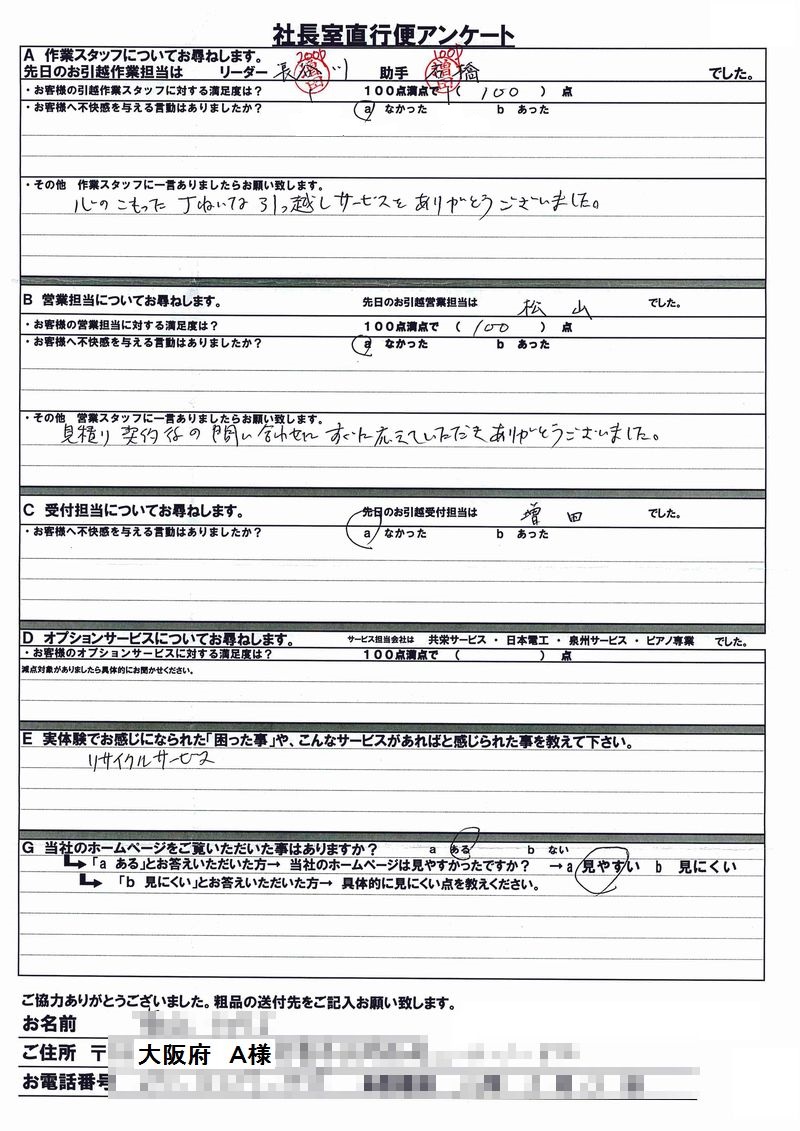 社長室直行便アンケート
A 作業スタッフについてお尋ねします。
先日のお引越作業担当は リーダー 長 川 助手 橋 でした。
2000 1000
・お客様の引越作業スタッフに対する満足度は? 100点満点で ( 100 ) 点
・お客様へ不快感を与える言動はありましたか? a なかった b あった
・その他 作業スタッフに一言ありましたらお願い致します。
心のこもった 丁ねいな 引っ越しサービスを ありがとうございました。
B 営業担当についてお尋ねします。 先日のお引越営業担当は 松山 でした。
・お客様の営業担当に対する満足度は? 100点満点で ( 100 ) 点
・お客様へ不快感を与える言動はありましたか? a なかった b あった
・その他 営業スタッフに一言ありましたらお願い致します。
見積り 契約後の 問い合わせに すぐに応えていただき ありがとうございました。
C 受付担当についてお尋ねします。 先日のお引越受付担当は 増田 でした。
・お客様へ不快感を与える言動はありましたか? a なかった b あった
D オプションサービスについてお尋ねします。 サービス担当会社は 共栄サービス ・ 日本電工 ・ 泉州サービス ・ ピアノ専業 でした。
・お客様のオプションサービスに対する満足度は? 100点満点で ( ) 点
減点対象がありましたら具体的にお聞かせください。
E 実体験でお感じになられた「困った事」や、こんなサービスがあればと感じられた事を教えて下さい。
リサイクルサービス
G 当社のホームページをご覧いただいた事はありますか? a ある b ない
「a ある」とお答えいただいた方→ 当社のホームページは見やすかったですか? →a 見やすい b 見にくい
「b 見にくい」とお答えいただいた方→ 具体的に見にくい点を教えください。
ご協力ありがとうございました。粗品の送付先をご記入お願い致します。
お名前
ご住所 〒 大阪府 A様
お電話番号